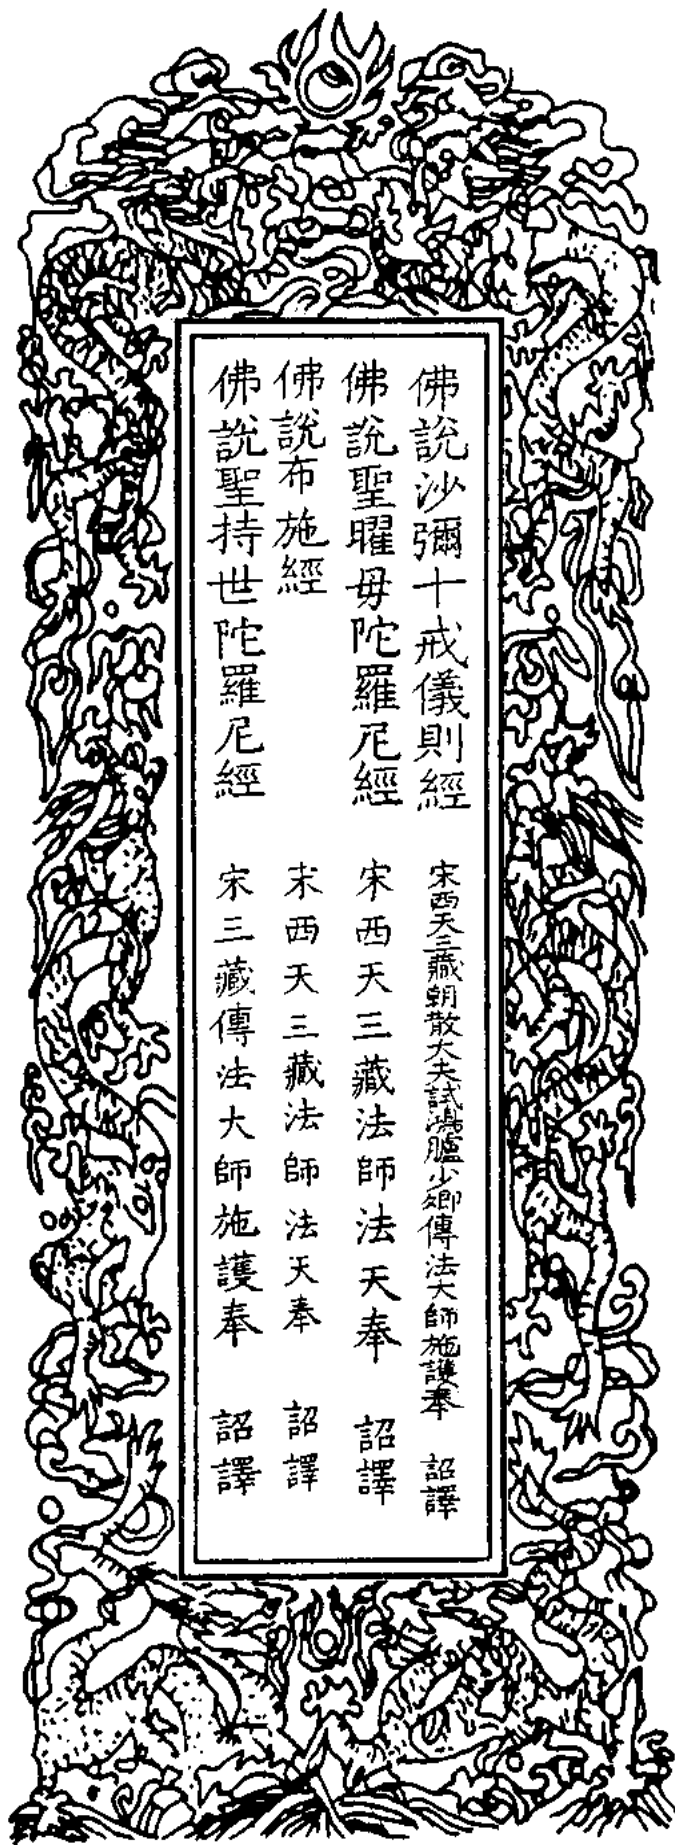 佛說沙彌十戒儀則經　宋西天三藏朝散大夫試鴻臚少卿傳法大師施護奉　詔譯
佛說聖曜母陀羅尼經　宋西天三藏法師法天奉　詔譯
佛說布施經　宋西天三藏法師法天奉　詔譯
佛說聖持世陀羅尼經　宋三藏傳法大師施護奉　詔譯